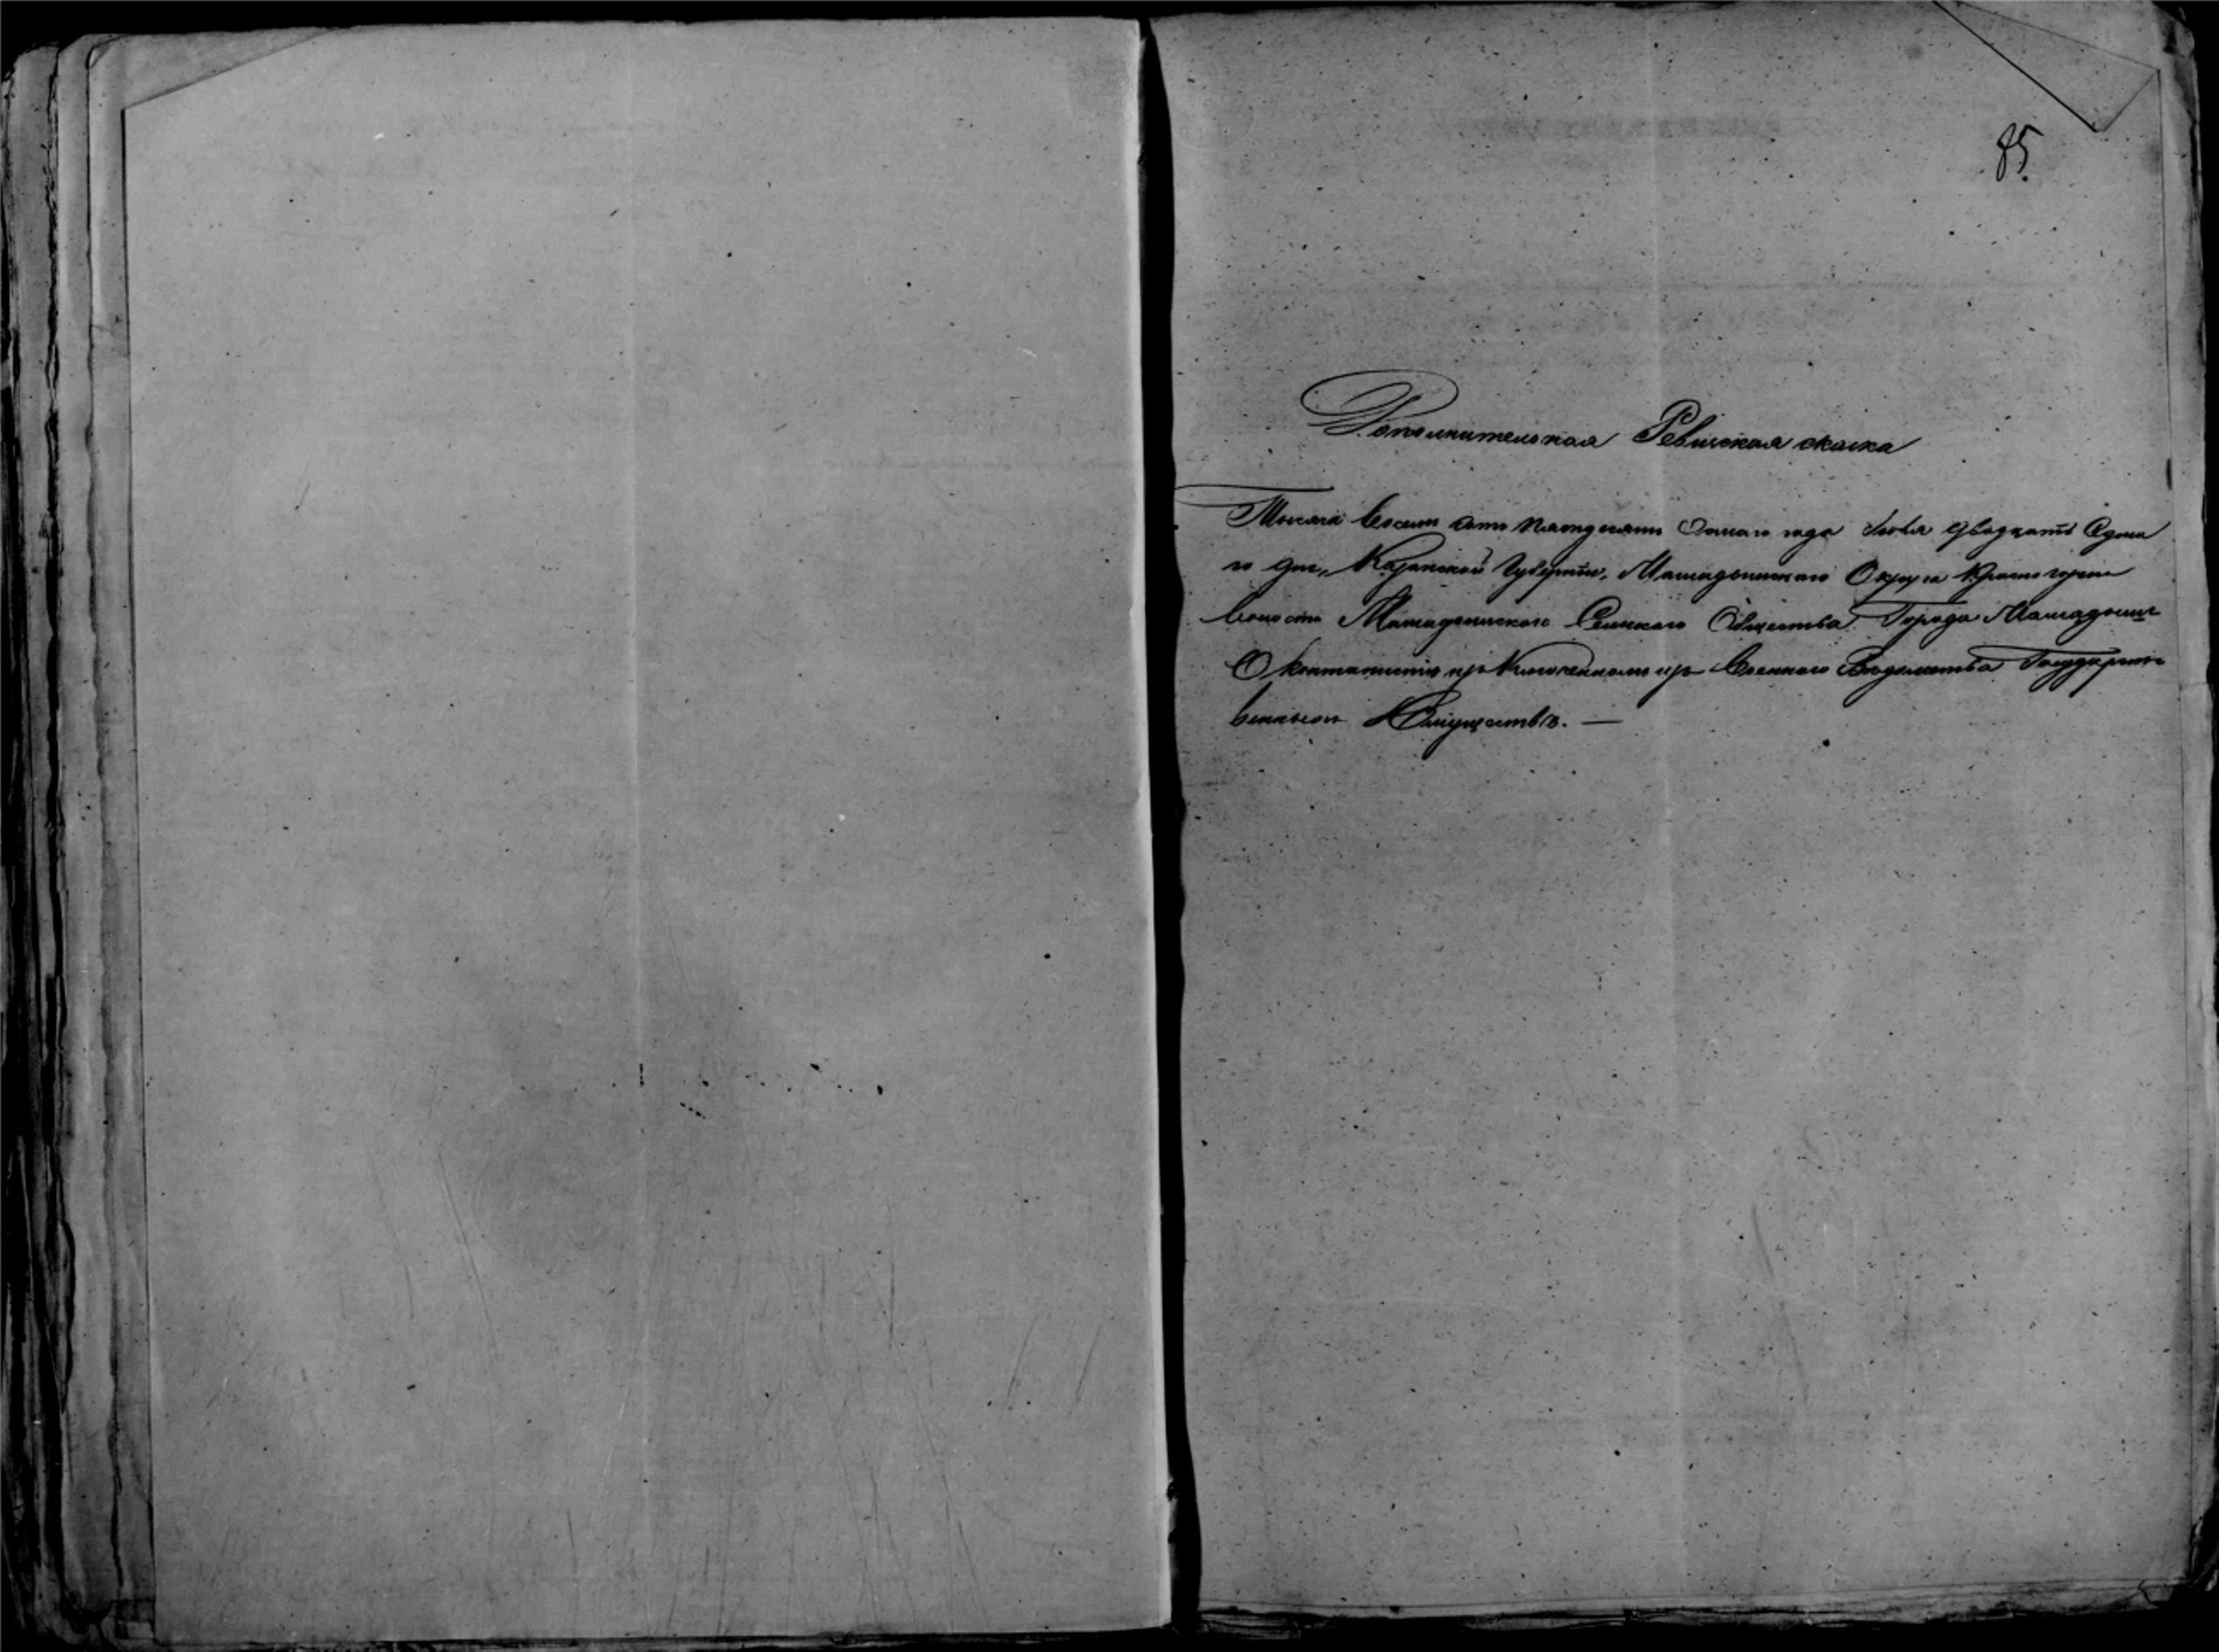 85.
Дополнительная Ревиская скаска
Тысяча восемь сотъ пятдесятъ Осмаго года Іюля двадцать Одна
го дня, Казанской Губерніи, Мамадышскаго Округа Красногорск
волости Мамадышскаго Селскаго Общества Города Мамадыша
О кантонистѣ изъ военнаго Вѣдомства Государст
венныхъ Имуществъ. —